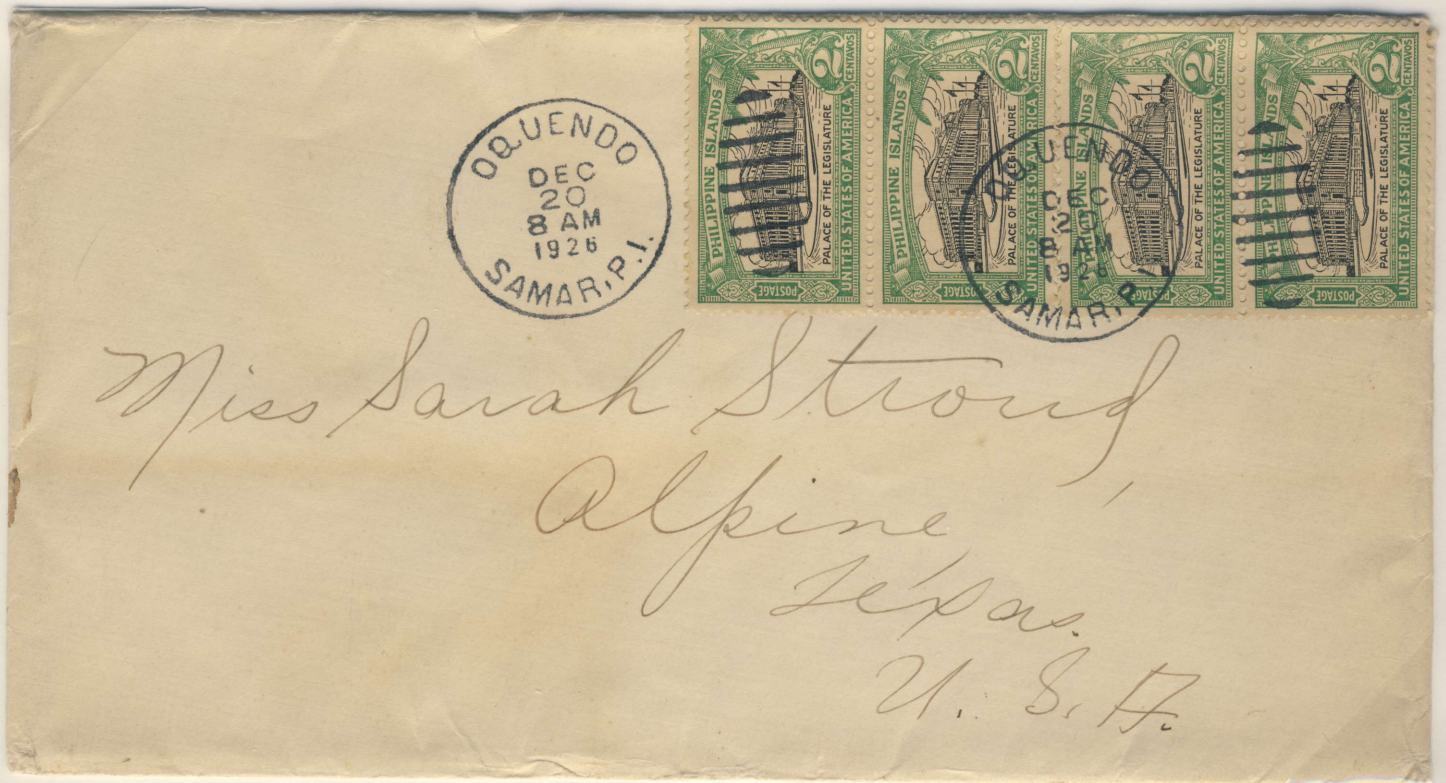 OQUENDO
DEC
20
8 AM
1926
SAMAR, P.I.
PHILIPPINE ISLANDS
2 CENTAVOS
PALACE OF THE LEGISLATURE
UNITED STATES OF AMERICA
POSTAGE
PHILIPPINE ISLANDS
2 CENTAVOS
PALACE OF THE LEGISLATURE
UNITED STATES OF AMERICA
POSTAGE
OQUENDO
DEC
20
8 AM
1926
SAMAR, P.I.
PHILIPPINE ISLANDS
2 CENTAVOS
PALACE OF THE LEGISLATURE
UNITED STATES OF AMERICA
POSTAGE
PHILIPPINE ISLANDS
2 CENTAVOS
PALACE OF THE LEGISLATURE
UNITED STATES OF AMERICA
POSTAGE
Miss Sarah Stroud,
Alpine,
Texas.
U. S. A.